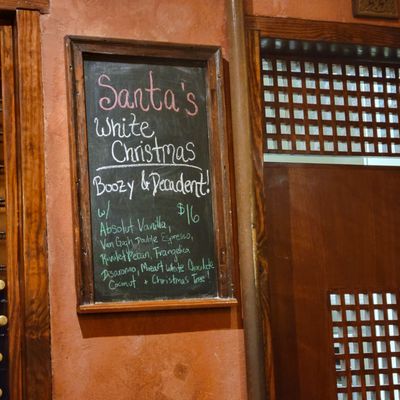 Santa's
White
Christmas
Boozy & Decadent!
w/ $16
Absolut Vanilla,
Van Gogh Double Espresso,
Pecan, Frangelico
Disaronno, Mozart White Chocolate
Coconut + Christmas Tree